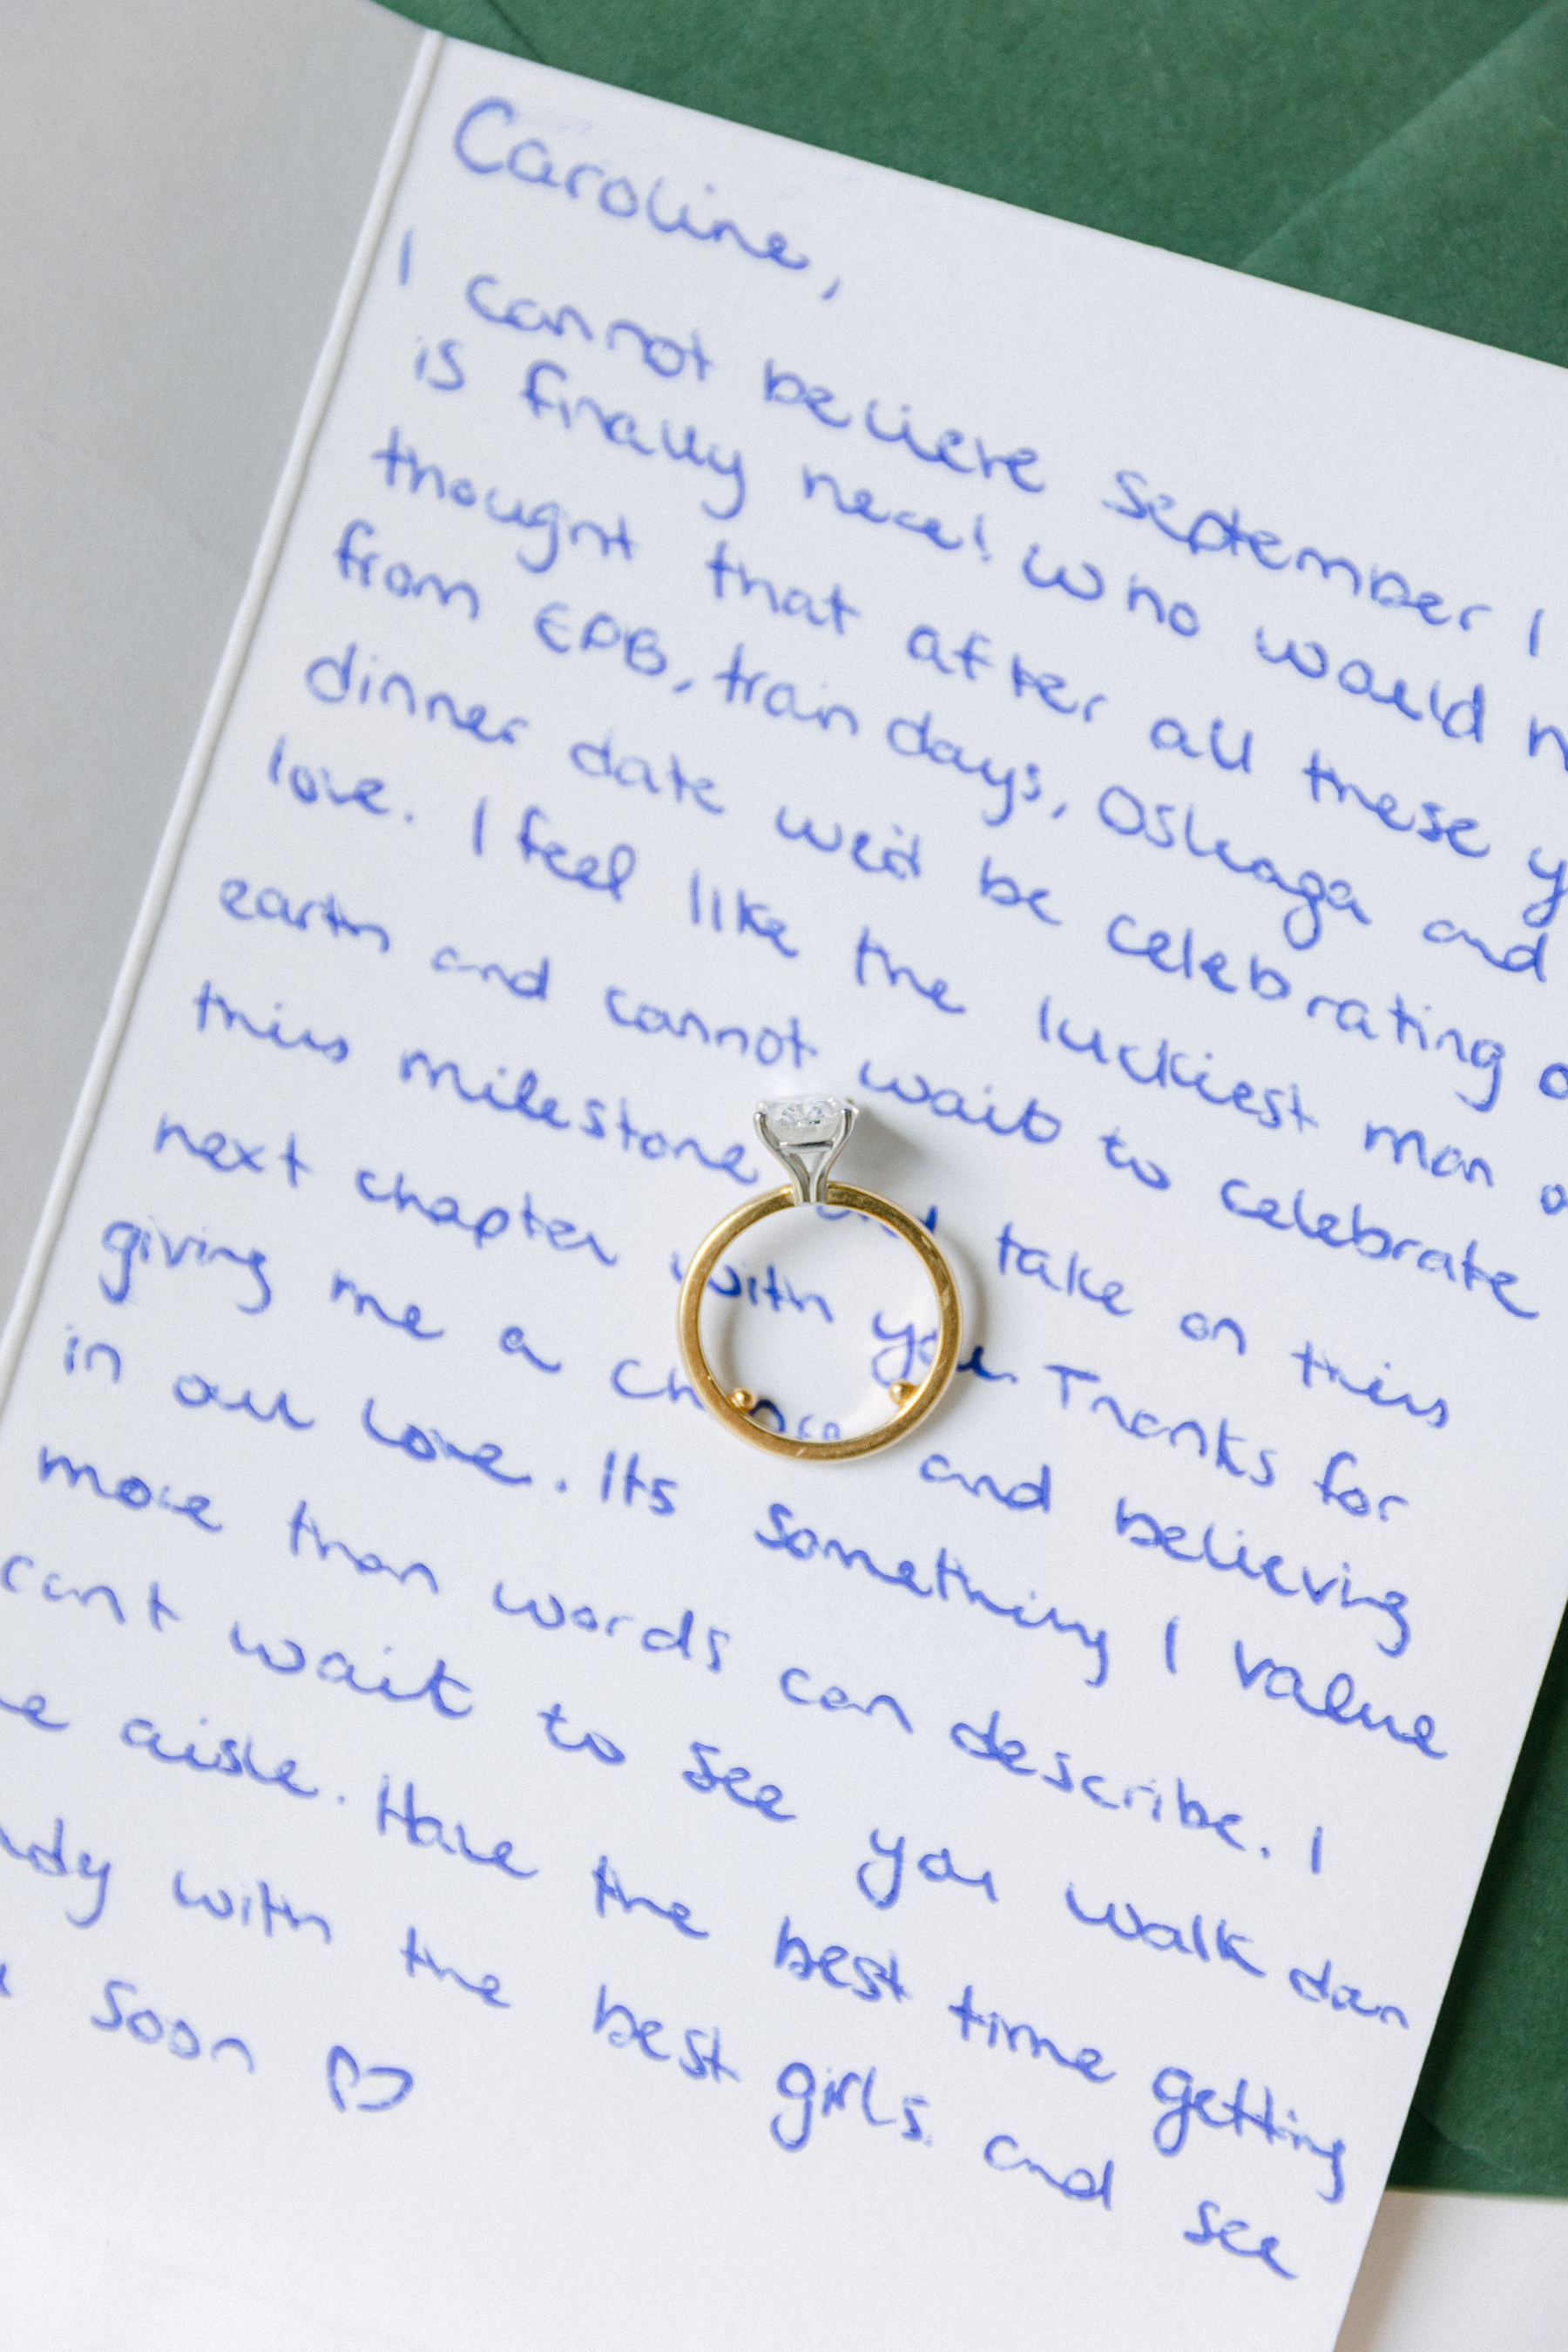 Caroline,
I cannot believe September 1
is finally here! Who would
thought that after all these
from EPB, train days, Osheaga and
dinner date we'd be celebrating
love. I feel like the luckiest man
earth and cannot wait to celebrate
this milestone and take on this
next chapter with you. Thanks for
giving me a chance and believing
in our love. Its something I value
more than words can describe. I
cant wait to see you walk down
aisle. Have the best time getting
with the best girls. and see
soon ♡